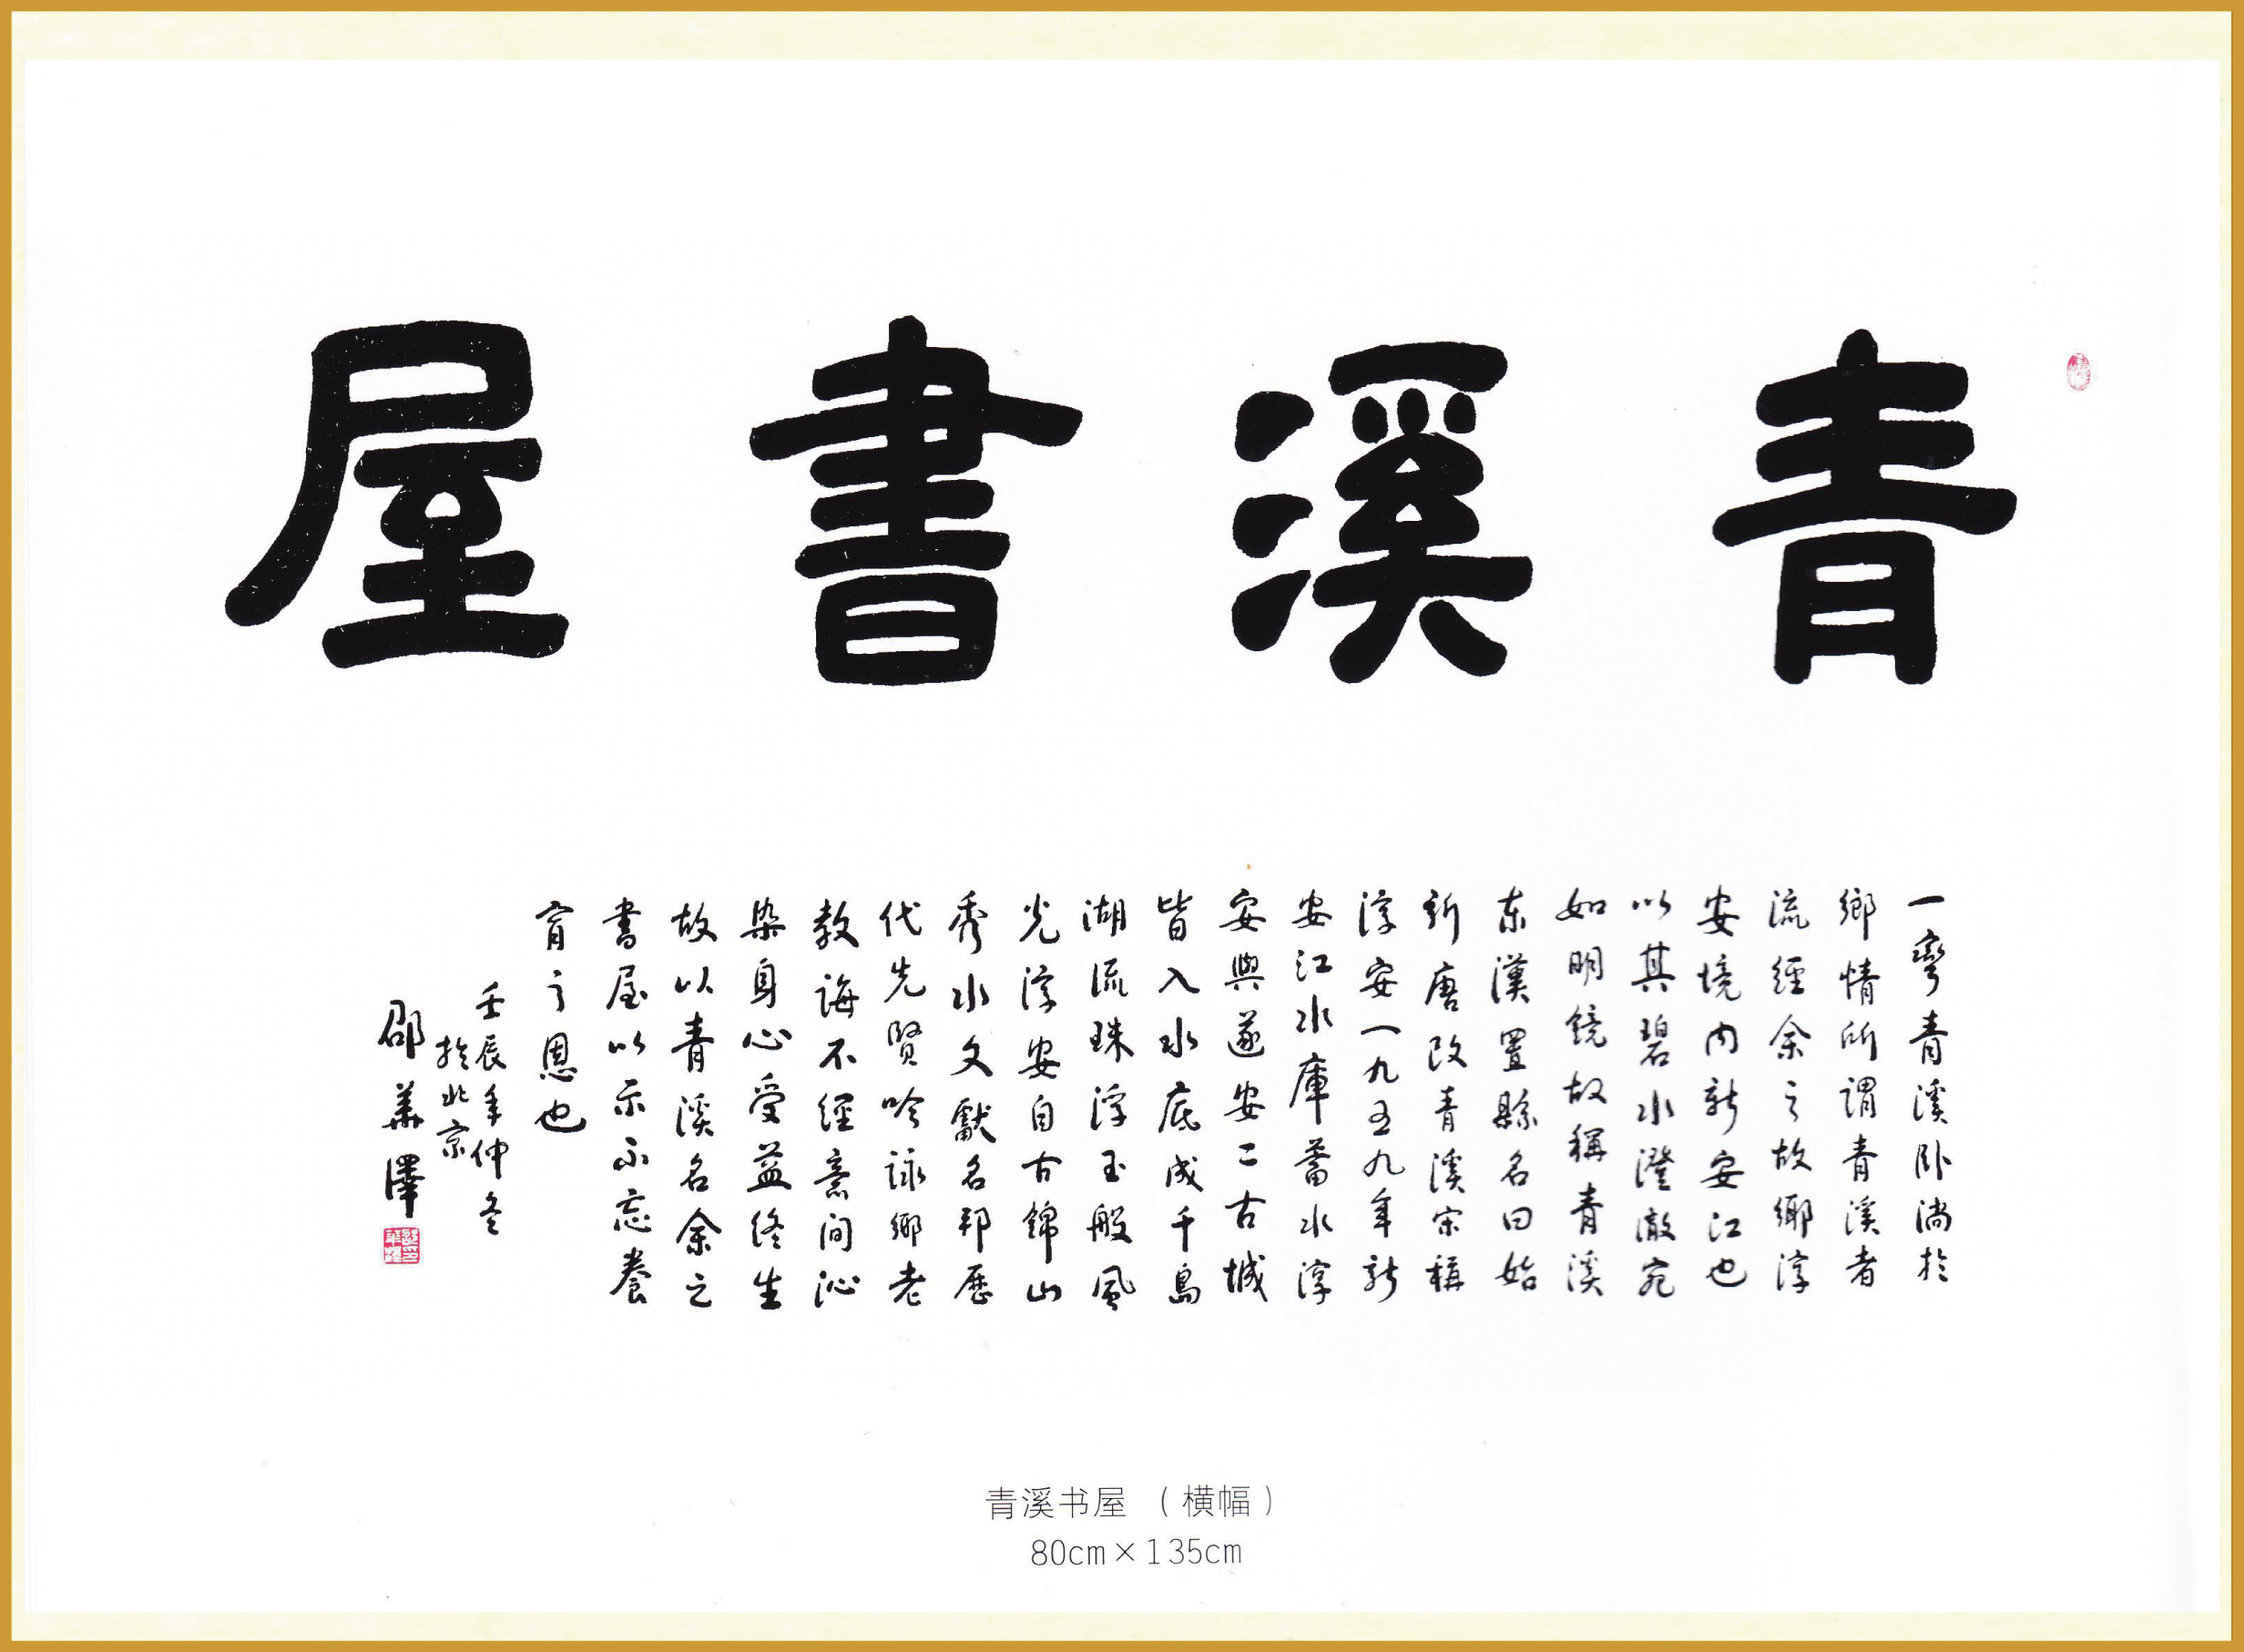 青溪書屋
一彎青溪卧淌於
鄉情所謂青溪者
流經余之故鄉淳
安境内新安江也
以其碧水澄澈宛
如明鏡故稱青溪
東漢置縣名曰始
新唐改青溪宋稱
淳安一九五九年新
安江水庫蓄水淳
安與遂安二古城
皆入水底成千島
湖流珠浮玉般風
光淳安自古錦山
秀水文獻名邦歷
代先賢吟詠鄉老
教誨不經意间沁
染身心受益終生
故以青溪名余之
書屋以示不忘養
育之恩也
壬辰年仲冬
於北京
邵華澤
青溪书屋 （横幅）
80cm×135cm